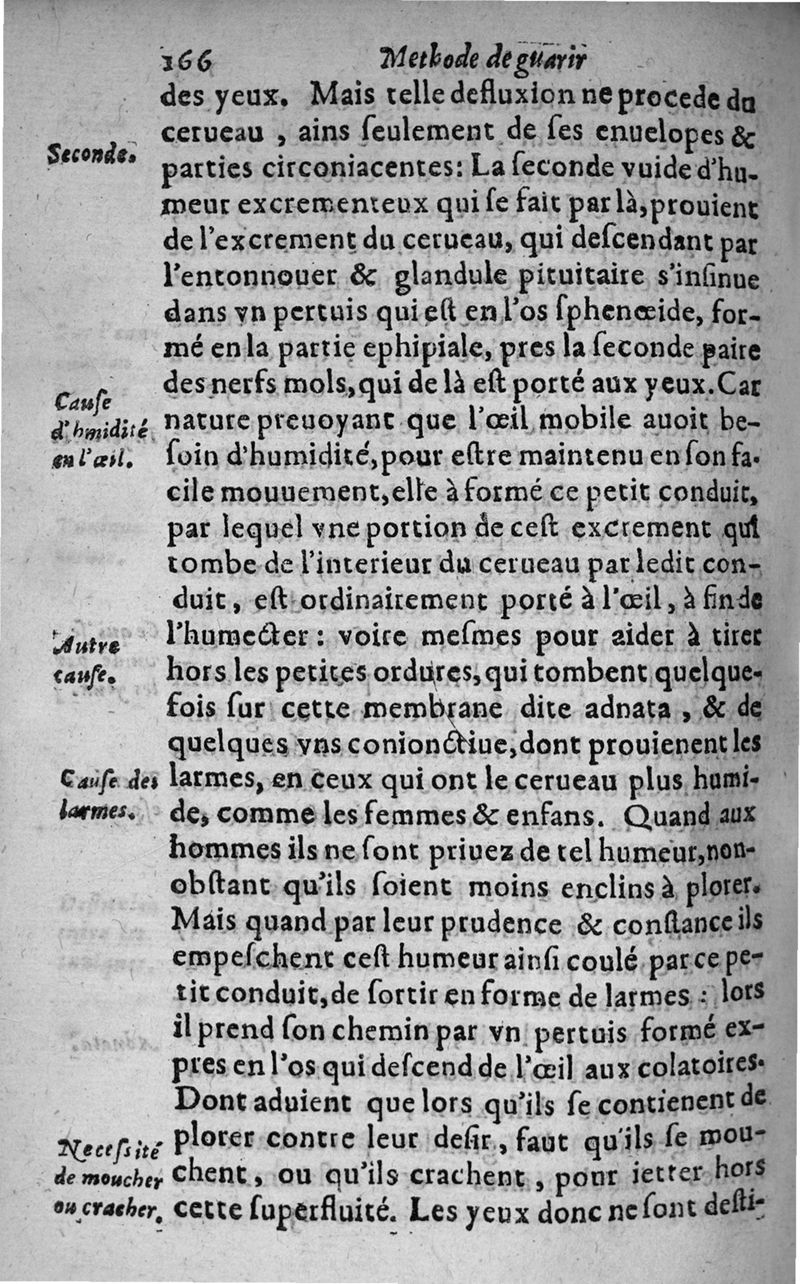 166 Methode de guarir
des yeux. Mais telle defluxion ne procede du
cerueau , ains ſeulement de ſes enuelopes &
Seconde.
parties circoniacentes: La ſeconde vuide d'hu-
meur excrementeux qui ſe fait par là,prouient
de l'excrement du cerueau, qui deſcendant par
l'entonnouer & glandule pituitaire s'inſinue
dans vn pertuis qui eſt en l'os ſphenœide, for-
mé en la partie ephipiale, pres la ſeconde paire
des nerfs mols,qui de là eſt porté aux yeux.Car
Cauſe
d'hmidité
en l'œil.
nature preuoyant que l'œil mobile auoit be-
ſoin d'humidité,pour eſtre maintenu en ſon fa-
cile mouuement,elle à formé ce petit conduit,
par lequel vne portion de ceſt excrement qui
tombe de l'interieur du cerueau par ledit con-
duit, eſt ordinairement porté à l'œil, à fin de
Autre
cauſe.
l'humecter : voire meſmes pour aider à tirer
hors les petites ordures,qui tombent quelque-
fois ſur cette membrane dite adnata , & de
quelques vns conionctiue,dont prouienent les
Cauſe des
larmes.
larmes, en ceux qui ont le cerueau plus humi-
de, comme les femmes & enfans. Quand aux
hommes ils ne ſont priuez de tel humeur,non-
obſtant qu'ils ſoient moins enclins à plorer.
Mais quand par leur prudence & conſtance ils
empeſchent ceſt humeur ainſi coulé par ce pe-
tit conduit,de ſortir en forme de larmes : lors
il prend ſon chemin par vn pertuis formé ex-
pres en l'os qui deſcend de l'œil aux colatoires.
Dont aduient que lors qu'ils ſe contienent de
Neceſsité
de moucher
ou cracher.
plorer contre leur deſir, faut qu'ils ſe mou-
chent, ou qu'ils crachent , pour ietter hors
cette ſuperfluité. Les yeux donc ne ſont deſti-